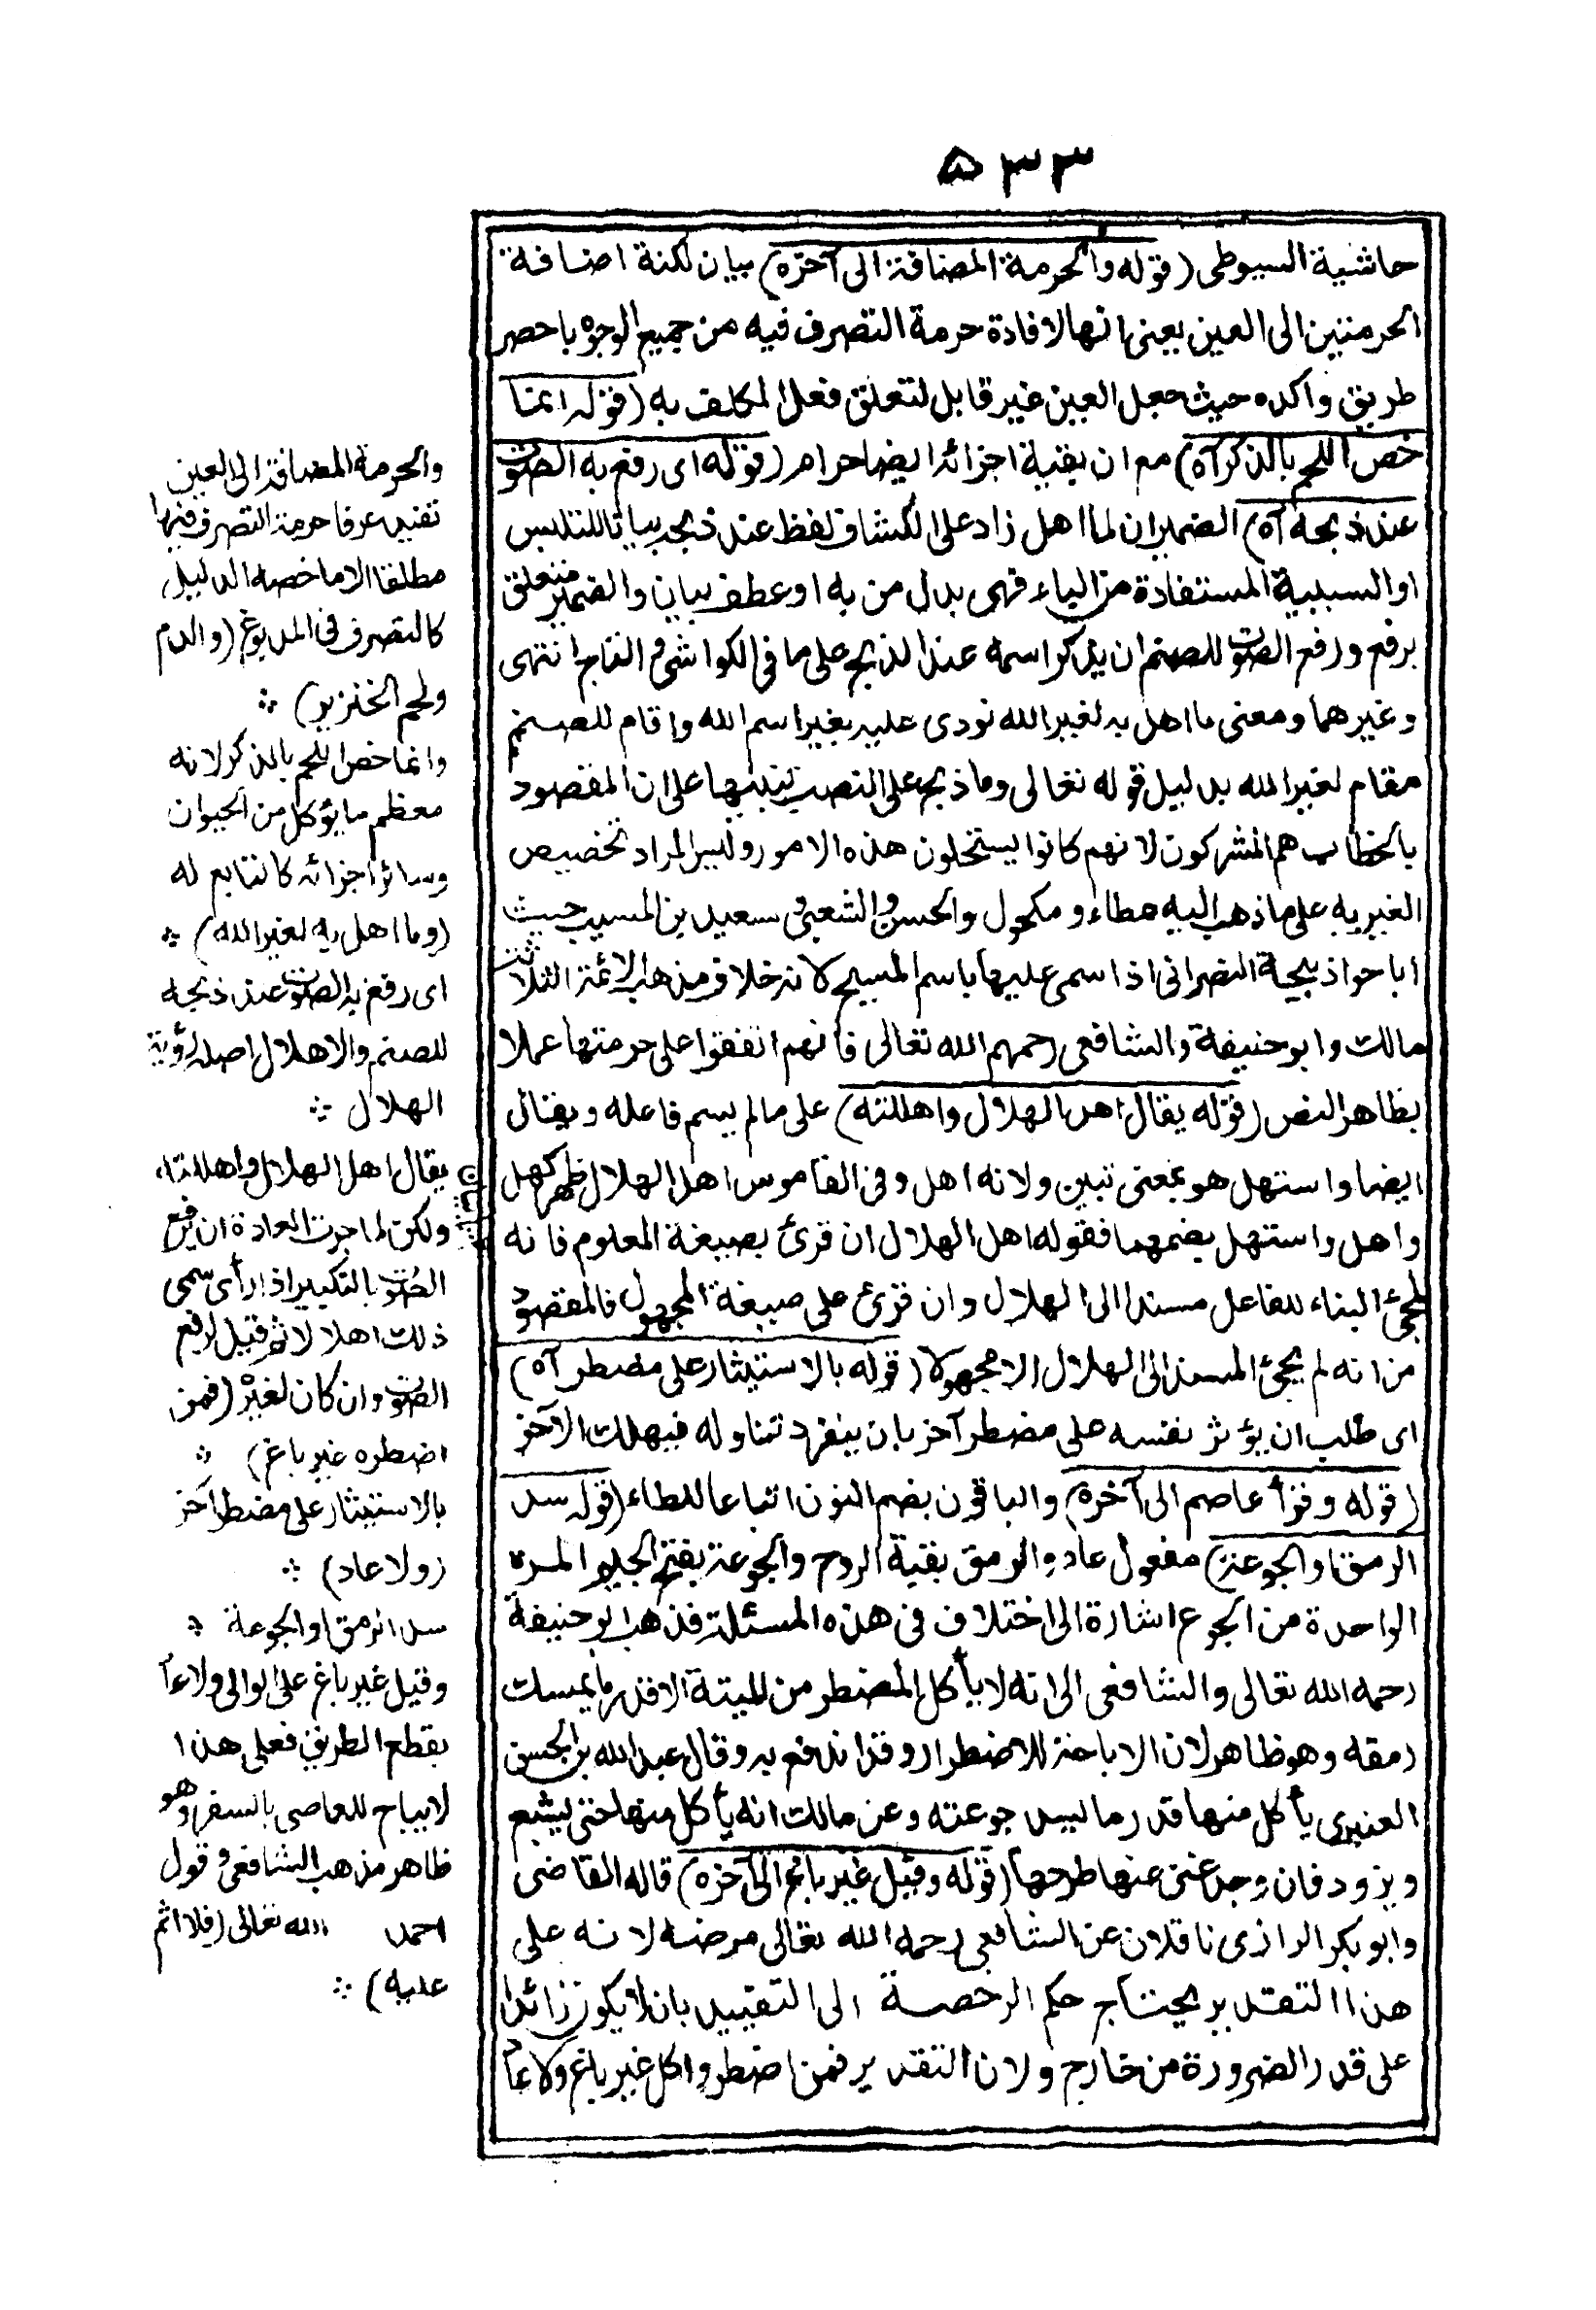 ۵۳۳
حاشية السيوطى (قوله والحرمة المضافة الى آخره) بيان لنكتة اضافة
الحرمتين الى العين يعنى انها لافادة حرمة التصرف فيه من جميع الوجوه باحصر
طريق واكده حيث جعل العين غير قابل لتعلق فعل المكلف به (قوله انما
خص اللحم بالذكر آه) مع ان بقية اجزائه ايضا حرام (قوله اى رفع به الصوت
عند ذبحه آه) الضميران لما اهل زاد على الكشاف لفظ عند ذبحه بيانا للتلبس
او السببية المستفادة من الباء فهى بدل من به او عطف بيان والضمير متعلق
برفع ورفع الصوت للصنم ان يذكر اسمه عند الذبح على ما فى الكواشى والتاج انتهى
وغيرهما ومعنى ما اهل به لغير الله نودى عليه بغير اسم الله واقام للصنم
مقام لغير الله بدليل قوله تعالى وما ذبح على النصب تنبيها على ان المقصود
بالخطاب هم المشركون لانهم كانوا يستحلون هذه الامور وليس المراد تخصيص
الغير به على ما ذهب اليه عطاء ومكحول والحسن والشعبى وسعيد بن المسيب حيث
اباحوا ذبيحة النصرانى اذا سمى عليها باسم المسيح لانه خلاف مذهب الائمة الثلاثة
مالك وابو حنيفة والشافعى رحمهم الله تعالى فانهم اتفقوا على حرمتها عملا
بظاهر النص (قوله يقال اهل الهلال واهللته) على ما لم يسم فاعله ويقال
ايضا واستهل هو بمعنى تبين ولانه اهل وفى القاموس اهل الهلال ظهر كهل
واهل واستهل بضمهما فقوله اهل الهلال ان قرئ بصيغة المعلوم فانه
لمجئ البناء للفاعل مسندا الى الهلال وان قرئ على صيغة المجهول فالمقصود
من انه لم يجئ المسند الى الهلال الا مجهولا (قوله بالاستيثار على مضطر آه)
اى طلب ان يؤثر نفسه على مضطر آخر بان ينفرد تناوله فيهلك الآخر
(قوله وقرأ عاصم الى آخره) والباقون بضم النون اتباعا للطاء (قوله سد
الرمق او الجوعة) مفعول عاد والرمق بقية الروح والجوعة بفتح الجيم المرة
الواحدة من الجوع اشارة الى اختلاف فى هذه المسئلة فذهب ابو حنيفة
رحمه الله تعالى والشافعى الى انه لا يأكل المضطر من الميتة الا قدر ما يمسك
رمقه وهو ظاهر لان الاباحة للاضطرار وقد اندفع به وقال عبد الله بن الحسن
العنبرى يأكل منها قدر ما يسد جوعته وعن مالك انه يأكل منها حتى يشبع
ويزود فان وجد غنى عنها طرحها (قوله وقيل غير باغ الى آخره) قاله القاضى
وابو بكر الرازى ناقلان عن الشافعى رحمه الله تعالى مرضه لانه على
هذا التقدير يحتاج حكم الرخصة الى التقييد بان لا يكون زائدا
على قدر الضرورة من خارج ولان التقدير فمن اضطر واكل غير باغ ولا عاد
والحرمة المضافة الى العين
تفيد عرفا حرمة التصرف فيها
مطلقا الا ما خصه الدليل
كالتصرف فى المدبوغ (والدم
ولحم الخنزير)
وانما خص اللحم بالذكر لانه
معظم ما يؤكل من الحيوان
وسائر اجزائه كالتابع له
(وما اهل به لغير الله)
اى رفع به الصوت عند ذبحه
للصنم والاهلال اصله رؤية
الهلال
يقال اهل الهلال واهللته
ولكن لما جرت العادة ان يرفع
الصوت بالتكبير اذا رأى سمى
ذلك اهلالا ثم قيل لرفع
الصوت وان كان لغيره (فمن
اضطر غير باغ)
بالاستيثار على مضطر آخر
(ولا عاد)
سد الرمق او الجوعة
وقيل غير باغ على الوالى ولا عاد
بقطع الطريق فعلى هذا
لا يباح للعاصى بالسفر وهو
ظاهر مذهب الشافعى وقول
احمد الله تعالى (فلا اثم
عليه)